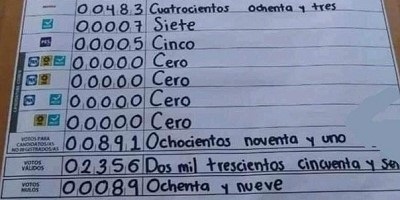 00483 Cuatrocientos ochenta y tres
00007 Siete
PES 00005 Cinco
00000 Cero
00000 Cero
00000 Cero
00000 Cero
VOTOS PARA CANDIDATOS/AS NO REGISTRADOS/AS 00891 Ochocientos noventa y uno
VOTOS VÁLIDOS 02356 Dos mil trescientos cincuenta y seis
VOTOS NULOS 00089 Ochenta y nueve